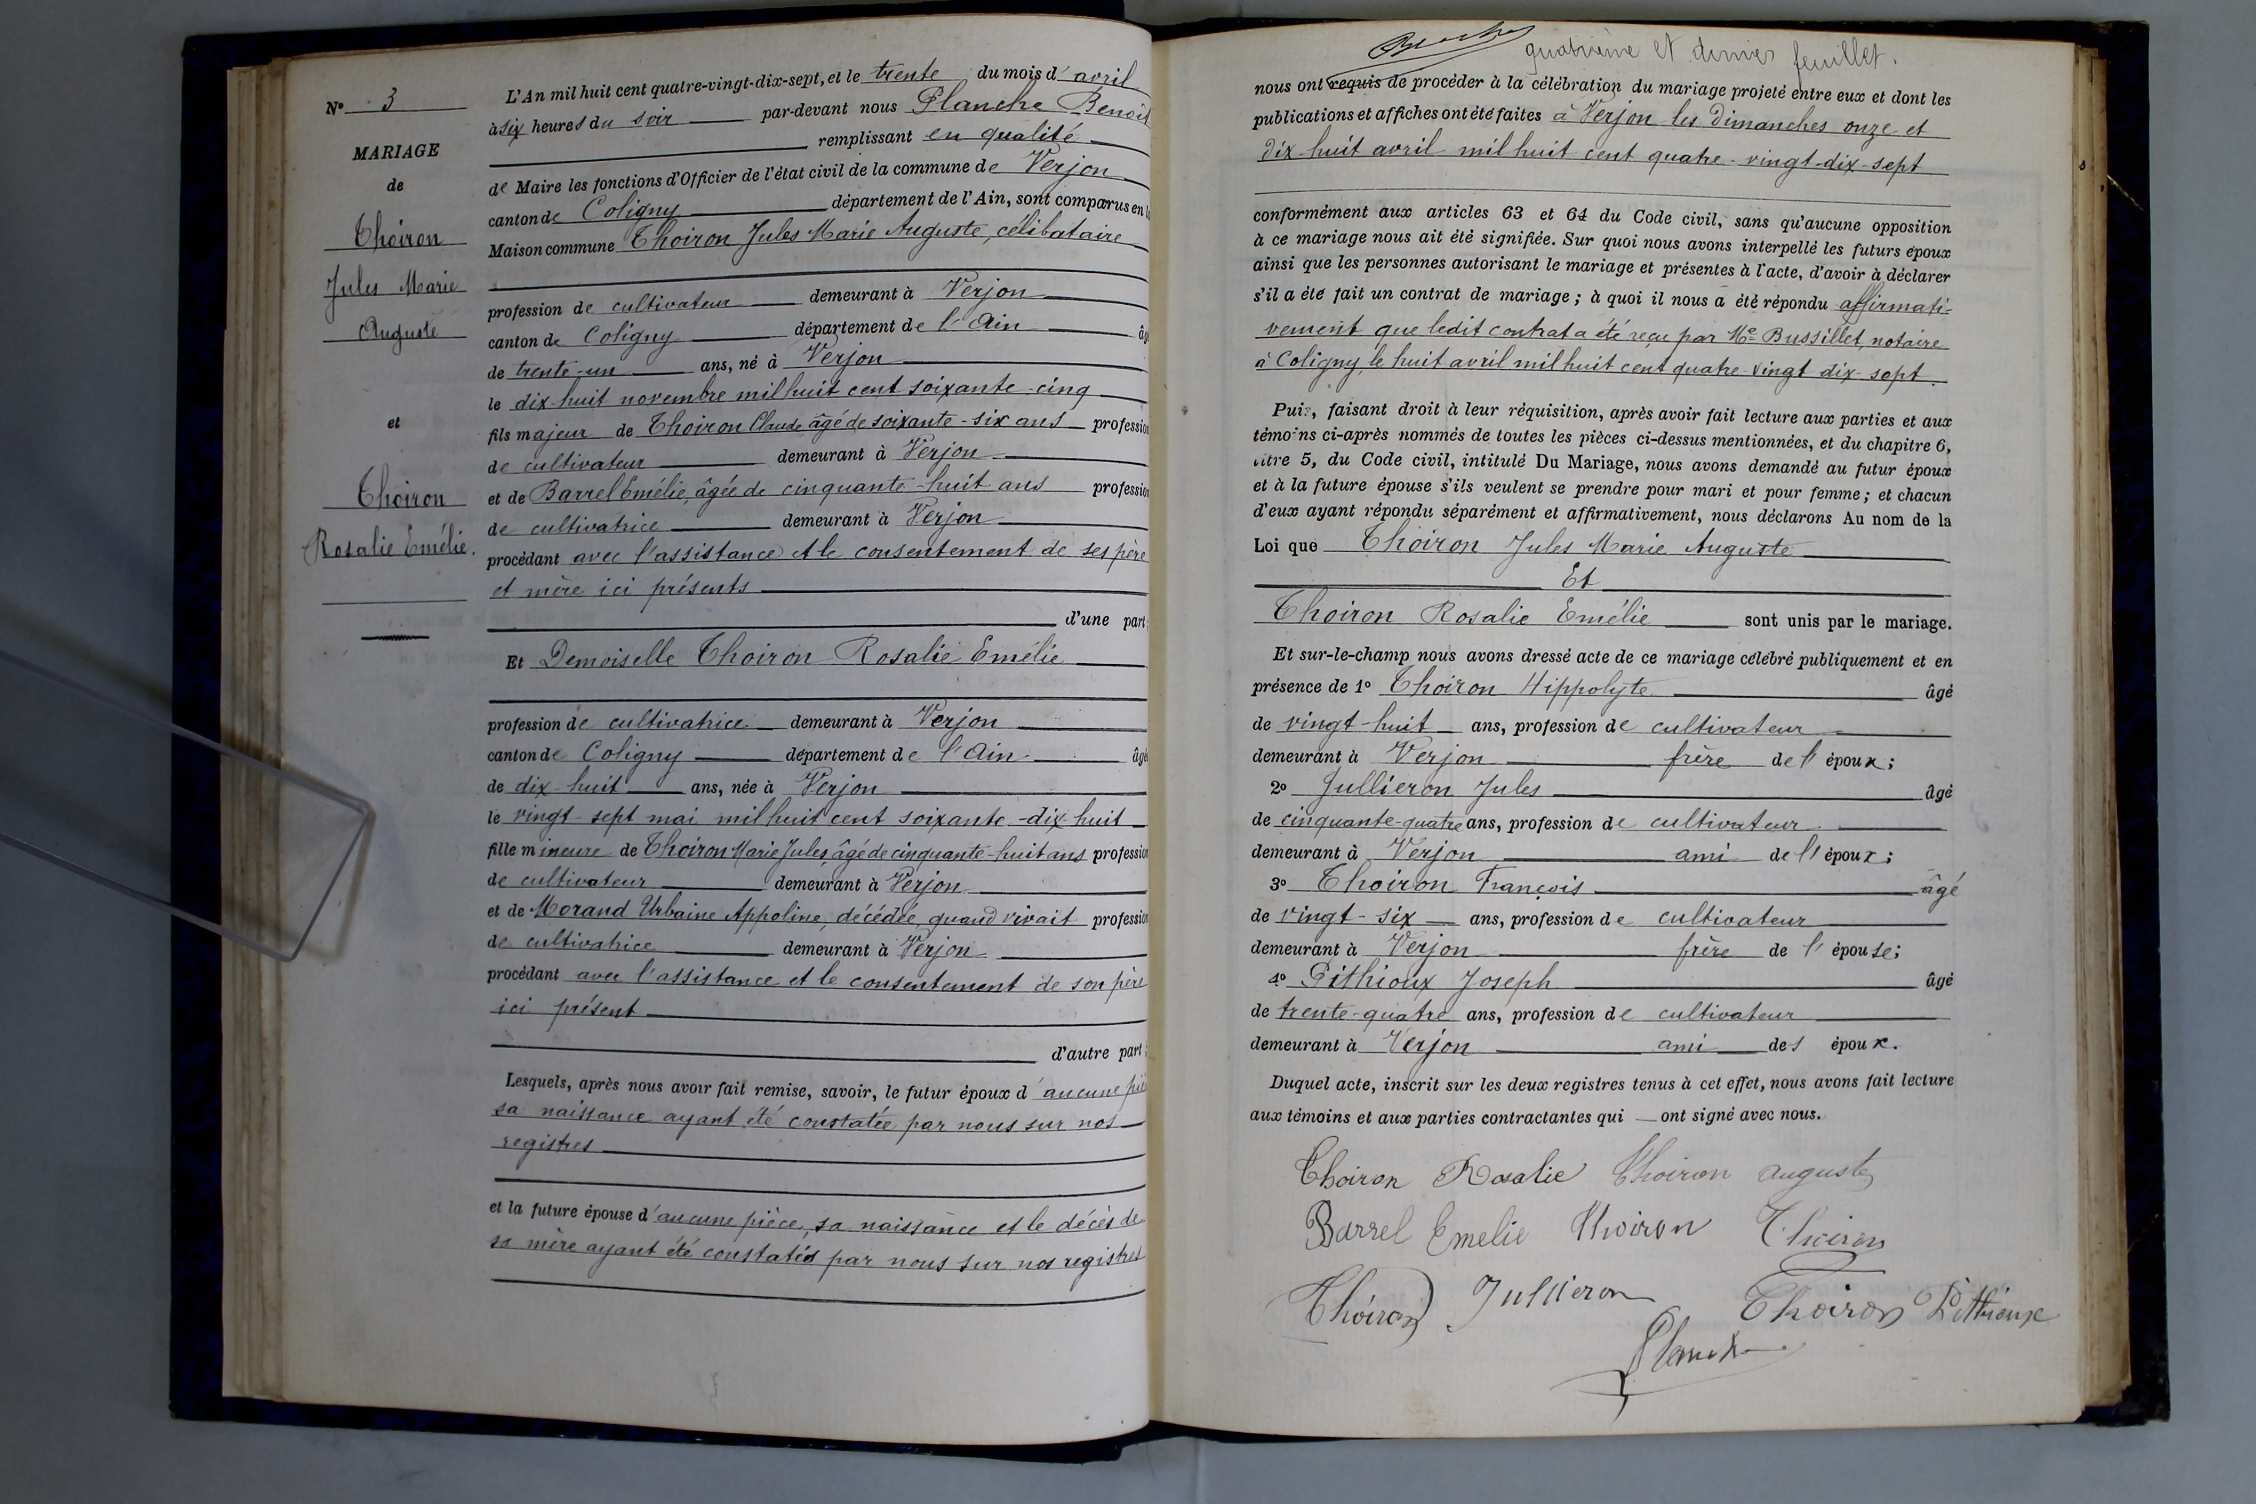 N° 3
MARIAGE
de
Thoiron
Jules Marie
Auguste
et
Thoiron
Rosalie Emélie.
L'An mil huit cent quatre-vingt-dix-sept, et le trente du mois d'avril
à six heures du soir par-devant nous Planche Benoît
remplissant en qualité
de Maire les fonctions d'Officier de l'état civil de la commune de Verjon
canton de Coligny département de l'Ain, sont comparus en la
Maison commune Thoiron Jules Marie Auguste, célibataire
profession de cultivateur demeurant à Verjon
canton de Coligny département de l'Ain âgé
de trente-un ans, né à Verjon
le dix-huit novembre mil huit cent soixante-cinq
fils majeur de Thoiron Claude âgé de soixante-six ans profession
de cultivateur demeurant à Verjon
et de Barrel Emélie, âgée de cinquante-huit ans profession
de cultivatrice demeurant à Verjon
procédant avec l'assistance et le consentement de ses père
et mère ici présents
d'une part;
Et Demoiselle Thoiron Rosalie Emélie
profession de cultivatrice demeurant à Verjon
canton de Coligny département de l'Ain âgé
de dix-huit ans, née à Verjon
le vingt-sept mai mil huit cent soixante-dix-huit
fille mineure de Thoiron Marie Jules, âgé de cinquante-huit ans profession
de cultivateur demeurant à Verjon
et de Morand Urbaine Appoline, décédée, quand vivait profession
de cultivatrice demeurant à Verjon
procédant avec l'assistance et le consentement de son père
ici présent
d'autre part;
Lesquels, après nous avoir fait remise, savoir, le futur époux d'aucune
sa naissance ayant été constatée par nous sur nos
registres
et la future épouse d'aucune pièce, sa naissance et le décès de
sa mère ayant été constatés par nous sur nos registres
quatrième et dernier feuillet.
nous ont requis de procéder à la célébration du mariage projeté entre eux et dont les
publications et affiches ont été faites à Verjon les Dimanches onze et
dix-huit avril mil huit cent quatre-vingt-dix-sept
conformément aux articles 63 et 64 du Code civil, sans qu'aucune opposition
à ce mariage nous ait été signifiée. Sur quoi nous avons interpellé les futurs époux
ainsi que les personnes autorisant le mariage et présentes à l'acte, d'avoir à déclarer
s'il a été fait un contrat de mariage; à quoi il nous a été répondu affirmati-
vement que ledit contrat a été reçu par Me Bussillet, notaire
à Coligny, le huit avril mil huit cent quatre-vingt dix-sept.
Puis, faisant droit à leur réquisition, après avoir fait lecture aux parties et aux
témoins ci-après nommés de toutes les pièces ci-dessus mentionnées, et du chapitre 6,
titre 5, du Code civil, intitulé Du Mariage, nous avons demandé au futur époux
et à la future épouse s'ils veulent se prendre pour mari et pour femme; et chacun
d'eux ayant répondu séparément et affirmativement, nous déclarons Au nom de la
Loi que Thoiron Jules Marie Auguste
Et
Thoiron Rosalie Emélie sont unis par le mariage.
Et sur-le-champ nous avons dressé acte de ce mariage célébré publiquement et en
présence de 1° Thoiron Hippolyte âgé
de vingt-huit ans, profession de cultivateur
demeurant à Verjon frère de l'époux;
2° Jullieron Jules âgé
de cinquante-quatre ans, profession de cultivateur
demeurant à Verjon ami de l'époux;
3° Thoiron François âgé
de vingt-six ans, profession de cultivateur
demeurant à Verjon frère de l'épouse;
4° Pithioux Joseph âgé
de trente-quatre ans, profession de cultivateur
demeurant à Verjon ami des époux.
Duquel acte, inscrit sur les deux registres tenus à cet effet, nous avons fait lecture
aux témoins et aux parties contractantes qui — ont signé avec nous.
Thoiron Rosalie Thoiron auguste
Barrel Emelie Thoiron Thoiron
Thoiron Jullieron Thoiron Pithioux
Planche